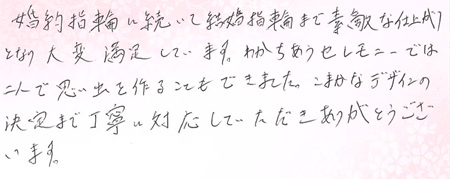 婚約指輪に続いて結婚指輪まで素敵な仕上がり
となり大変満足しています。わかちあうセレモニーでは
二人で思い出を作ることもできました。こまかなデザインの
決定まで丁寧に対応していただきありがとうござ
います。